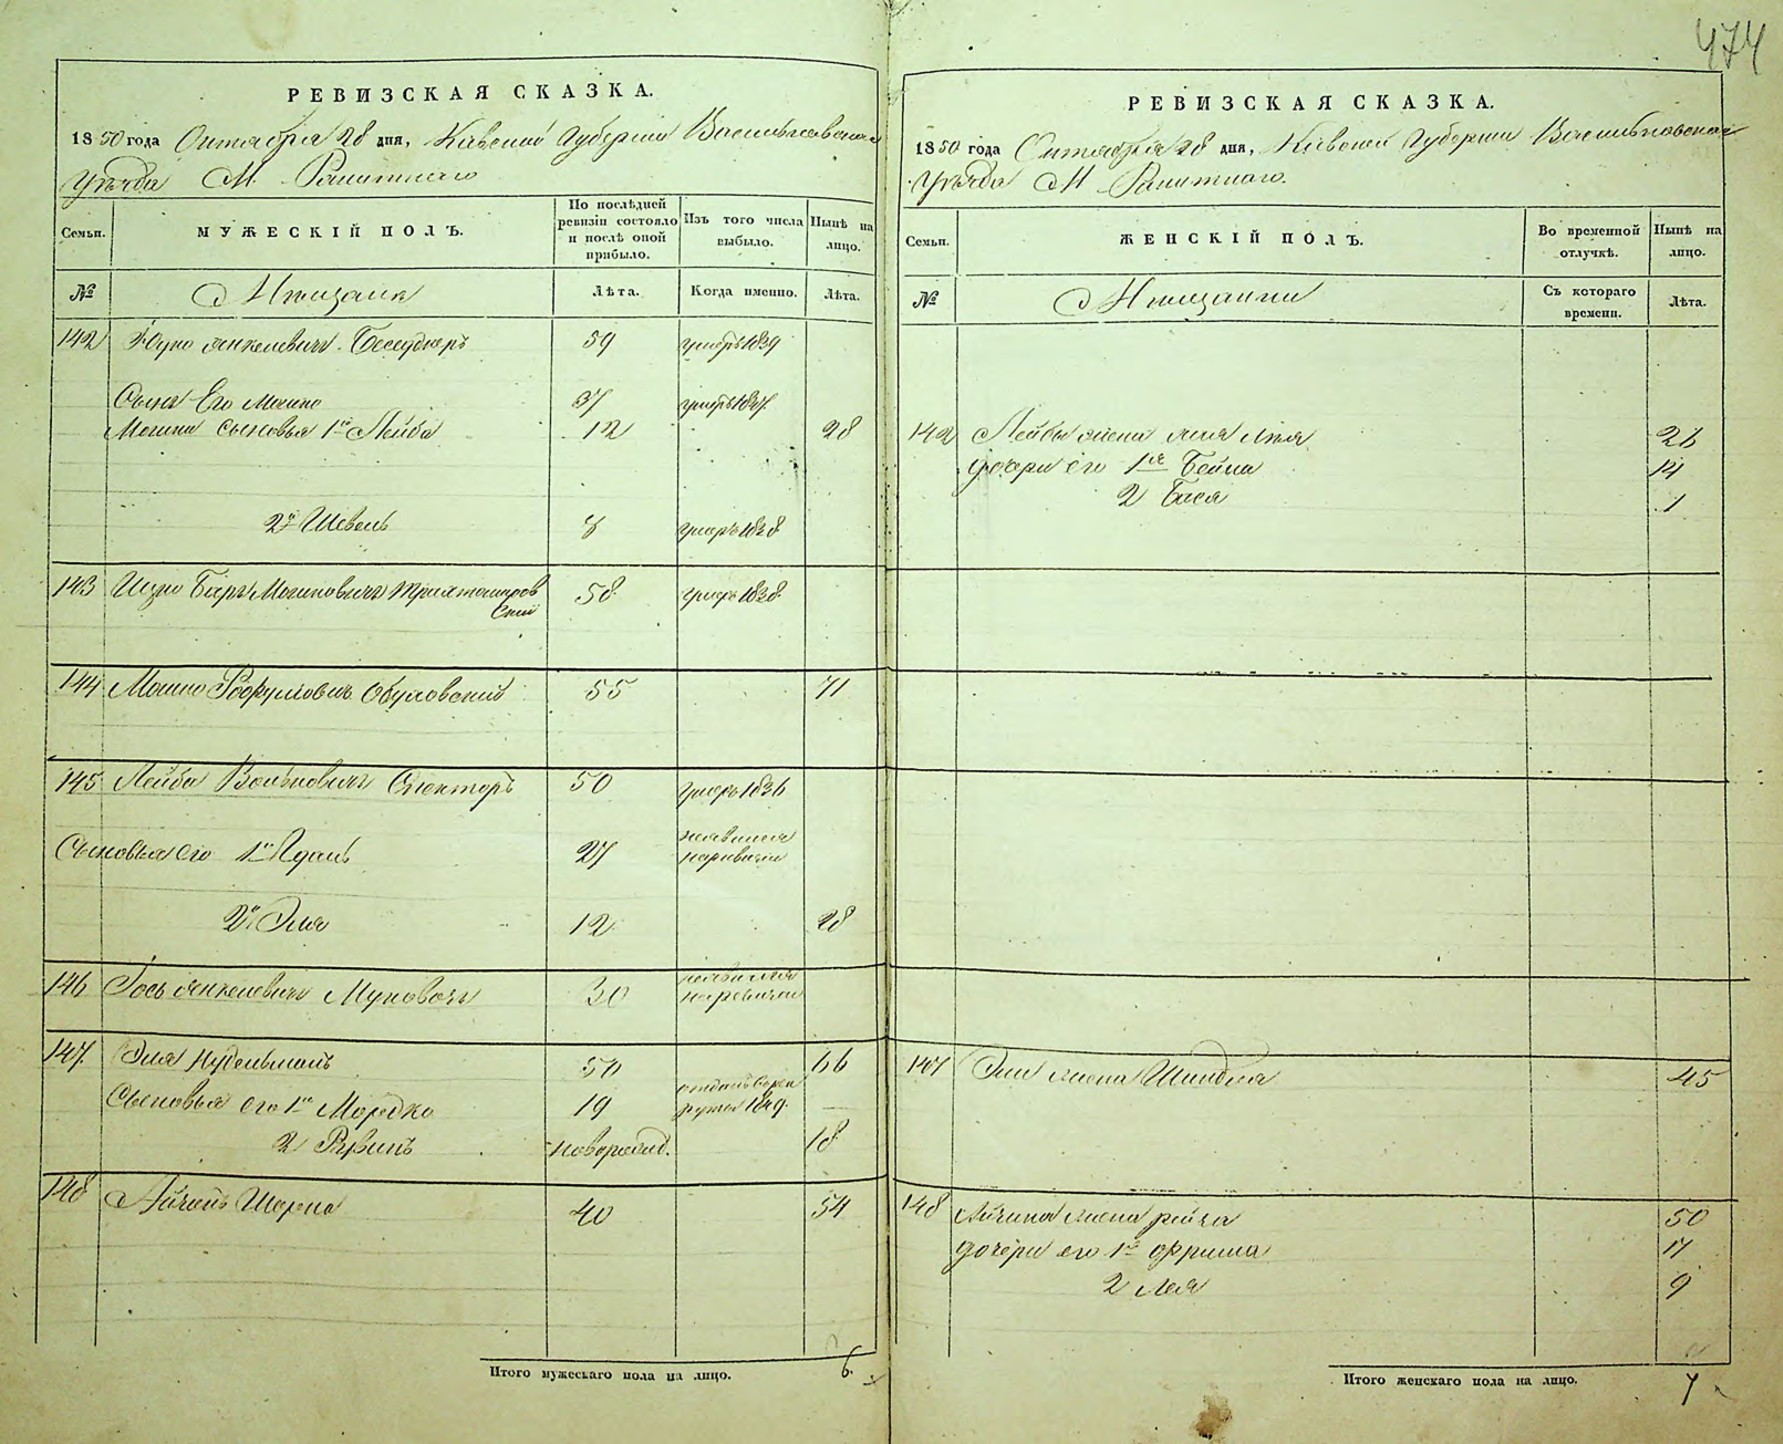 474
РЕВИЗСКАЯ СКАЗКА.
1850 года Октября 28 дня, Кіевской Губерніи Васильковскаго
Уѣзда М. Ракитнаго
Семьи.
МУЖЕСКІЙ ПОЛЪ.
По послѣдней
ревизіи состояло
и послѣ оной
прибыло.
Изъ того числа
выбыло.
Нынѣ на
лицо.
№
Мѣщане
Лѣта.
Когда именно.
Лѣта.
142 Янкелевичъ 59 умеръ 1839
Сынъ Его Мошко 37 умеръ 1847.
Мошки сыновья 1й Лейба 12 28
2й Шевель 8 умеръ 1838
143 Ицко Беръ Мошковичъ 58 умеръ 1838
скій
144 Мошко Обуховскій 55 71
145 Лейба Вольковичъ Спекторъ 50 умеръ 1836
Сыновья его 1й 27
2й Эля 12 28
146 Іось Янкелевичъ 30
147. Эля Нудельманъ 50 66
Сыновья его 1й Мордко 19 1849.
2 Рувинъ новорожд. 18
148 40 54
Итого мужескаго пола на лицо. 6.
РЕВИЗСКАЯ СКАЗКА.
1850 года Октября 28 дня, Кіевской Губерніи Васильковскаго
Уѣзда М Ракитнаго.
Семьи.
ЖЕНСКІЙ ПОЛЪ.
Во временной
отлучкѣ.
Нынѣ на
лицо.
№
Мѣщанки
Съ котораго
времени.
Лѣта.
142 Лейбы жена 26
дочери его 1я Бейла 14
2 Бася 1
147 Эли жена Шиндля 45
148 жена 50
дочери его 1я Фрима 17
2 Лея 9
Итого женскаго пола на лицо. 7